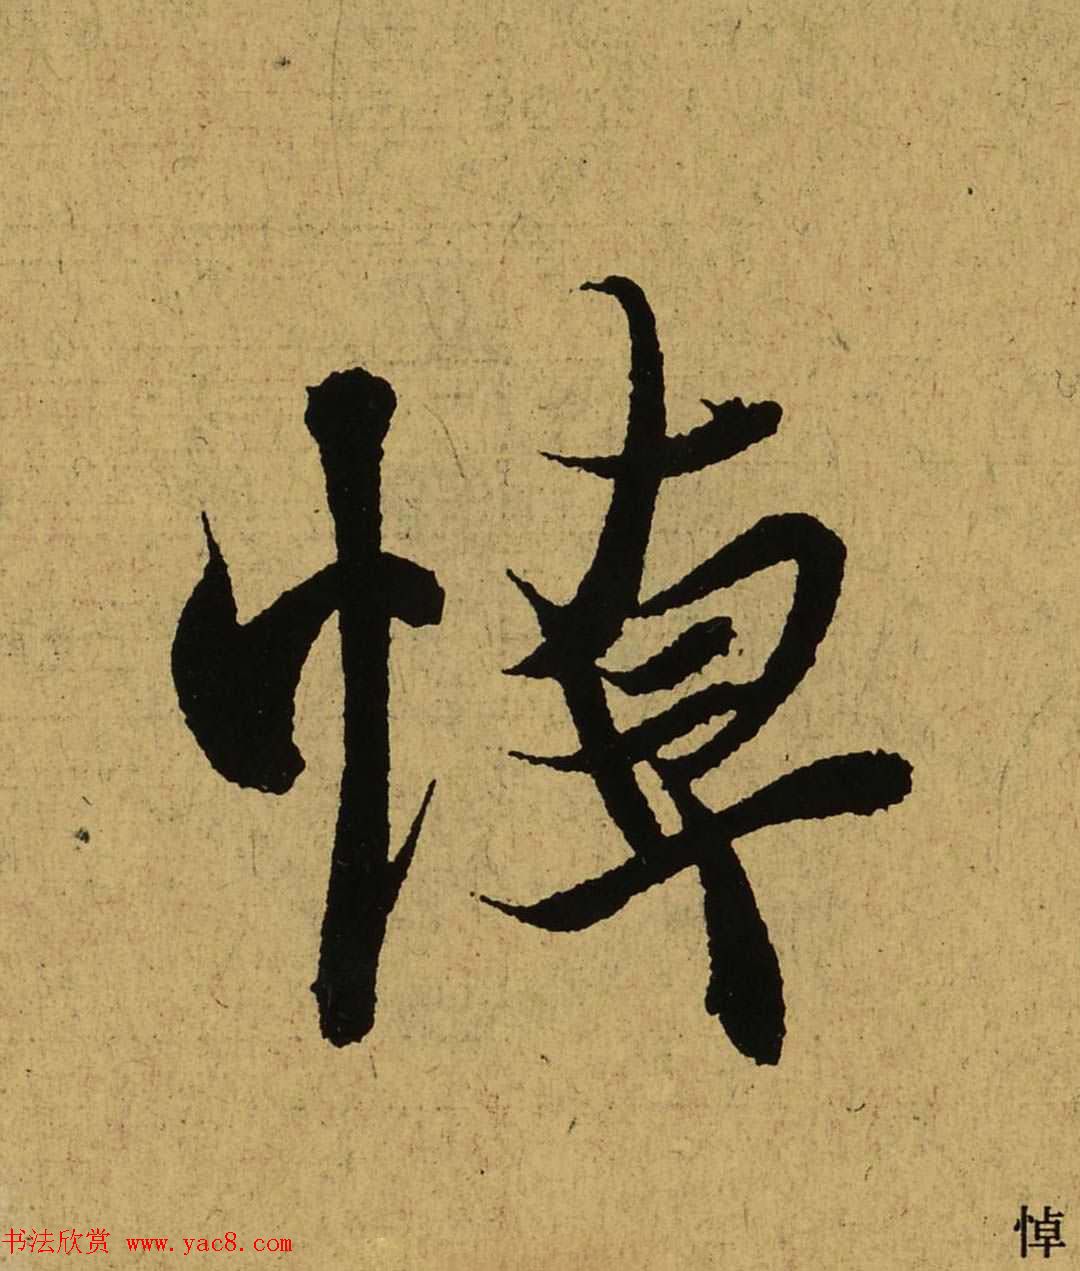 悼
悼
书法欣赏 www.yac8.com